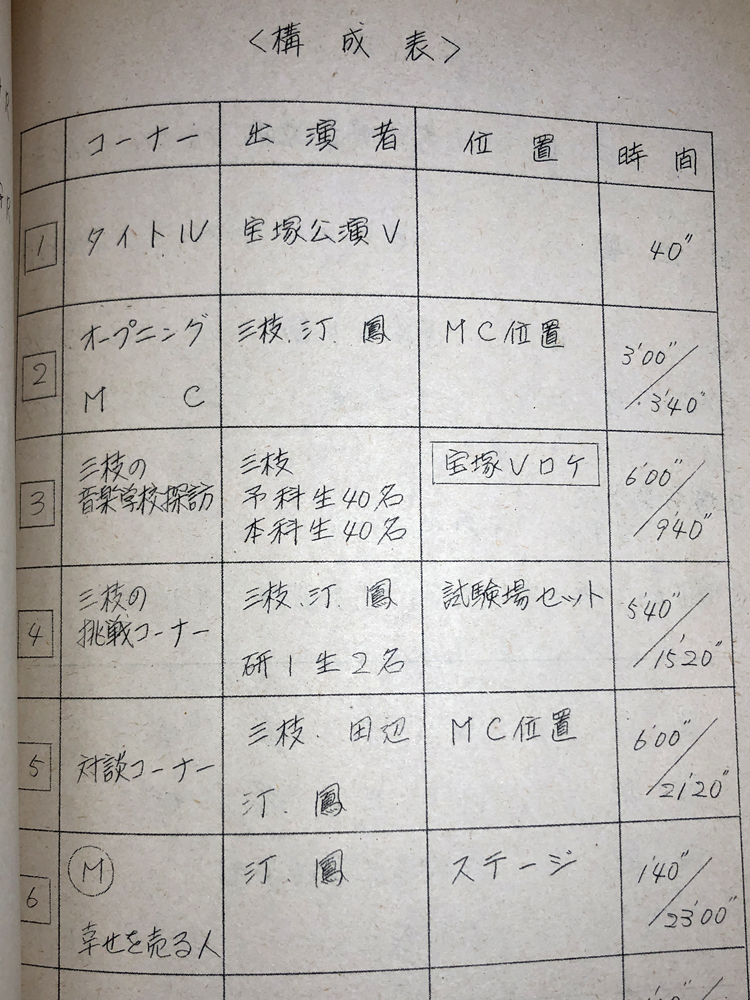 ＜構成表＞
コーナー 出演者 位置 時間
1 タイトル 宝塚公演V 40"
2 オープニング 三枝.汀.鳳 MC位置 3'00"/3'40"
MC
3 三枝の 三枝 宝塚Vロケ 6'00"/9'40"
音楽学校探訪 予科生40名
本科生40名
4 三枝の 三枝.汀.鳳 試験場セット 5'40"/15'20"
挑戦コーナー 研1生2名
5 対談コーナー 三枝.田辺 MC位置 6'00"/21'20"
汀.鳳
6 M 汀.鳳 ステージ 1'40"/23'00"
幸せを売る人